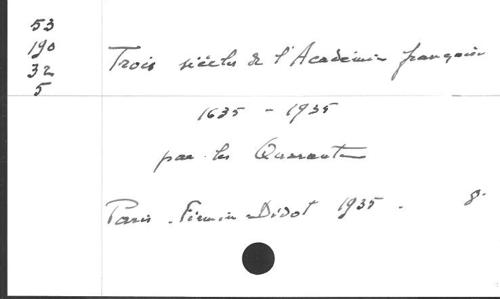 53
190
32
5
Trois siècles de l'Académie française
1635 - 1935
par les Quarante
Paris. Firmin-Didot 1935. 8.